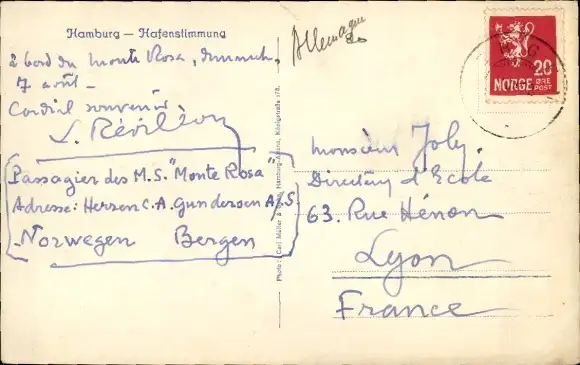 Hamburg — Hafenstimmung
Allemagne
à bord du Monte Rosa, dimanche,
7 août —
Cordial souvenir
L. Révillion
Passagier des M.S. "Monte Rosa"
Adresse: Herren C.A. Gundersen A/S
Norwegen Bergen
Photo: Carl Müller & Hamburg-Altona, Königstraße 178.
NORGE 20 ØRE
POST
Monsieur Joly.
Directeur d'Ecole
63. Rue Hénon
Lyon
France